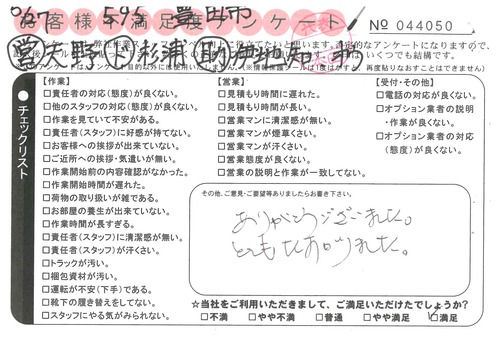 お客様不満足度アンケート
No 044050
595 豊田市
チェックリスト
【作業】
□責任者の対応(態度)が良くない。
□他のスタッフの対応(態度)が良くない。
□作業を見ていて不安がある。
□責任者(スタッフ)に好感が持てない。
□お客様への挨拶が出来ていない。
□ご近所への挨拶・気遣いが無い。
□作業開始前の内容確認がなかった。
□作業開始時間が遅れた。
□荷物の取り扱いが雑である。
□お部屋の養生が出来ていない。
□作業時間が長すぎる。
□責任者(スタッフ)に清潔感が無い。
□責任者(スタッフ)が汗くさい。
□トラックが汚い。
□梱包資材が汚い。
□運転が不安(下手)である。
□靴下の履き替えをしてない。
□スタッフにやる気がみられない。
【営業】
□見積もり時間に遅れた。
□見積もり時間が長い。
□営業マンに清潔感が無い。
□営業マンが煙草くさい。
□営業マンが汗くさい。
□営業態度が良くない。
□営業の説明と作業が一致してない。
【受付・その他】
□電話の対応が良くない。
□オプション業者の説明
・作業が良くない。
□オプション業者の対応
(態度)が良くない。
その他、ご意見・ご要望等ありましたらお書き下さい。
ありがとうございました。
とてもたすかりました。
☆当社をご利用いただきまして、ご満足いただけたでしょうか?
□不満 □やや不満 □普通 □やや満足 □満足